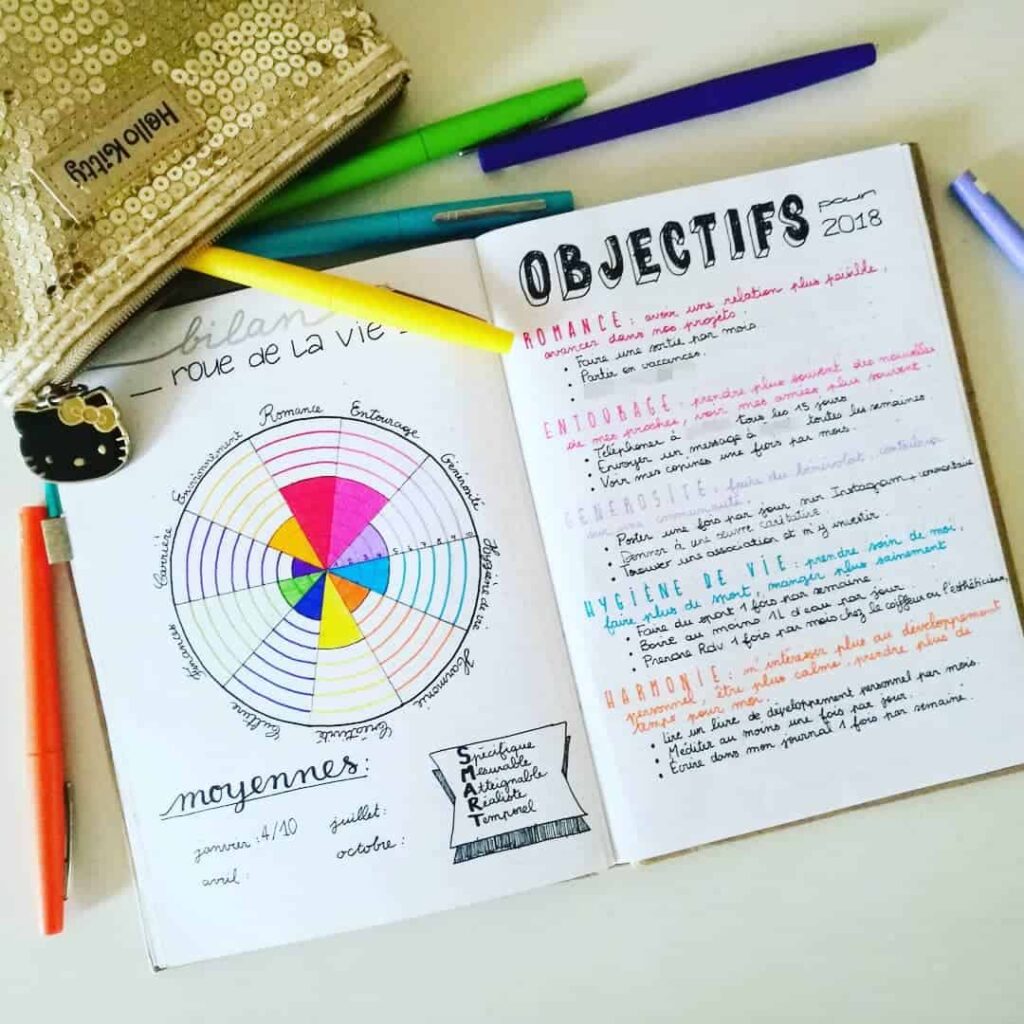 Hello Kitty
bilan
roue de la vie
Romance
Entourage
Générosité
Hygiène de vie
Harmonie
Créativité
Culture
Finances
Carrière
Environnement
moyennes:
janvier : 4/10
juillet:
avril :
octobre :
Spécifique
Mesurable
Atteignable
Réaliste
Temporel
OBJECTIFS pour
2018
ROMANCE : avoir une relation plus paisible,
avancer dans nos projets.
• Faire une sortie par mois.
• Partir en vacances.
ENTOURAGE : prendre plus souvent des nouvelles
de mes proches, voir mes amies plus souvent.
• Téléphoner à tous les 15 jours
• Envoyer un message à toutes les semaines.
• Voir mes copines une fois par mois.
GÉNÉROSITÉ : faire du bénévolat, contribuer
à une communauté.
• Poster une fois par jour sur Instagram + commentaire
• Donner à une œuvre caritative.
• Trouver une association et m'y investir.
HYGIÈNE DE VIE : prendre soin de moi,
faire plus de sport, manger plus sainement
• Faire du sport 1 fois par semaine.
• Boire au moins 1L d'eau par jour.
• Prendre Rdv 1 fois par mois chez le coiffeur ou l'esthéticienne
HARMONIE : m'intéresser plus au développement
personnel, être plus calme, prendre plus de
temps pour moi.
• Lire un livre de développement personnel par mois.
• Méditer au moins une fois par jour.
• Écrire dans mon journal 1 fois par semaine.